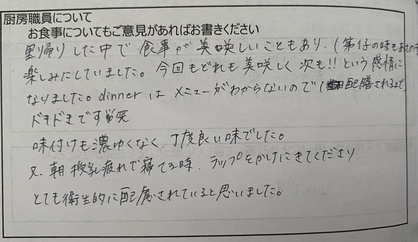 厨房職員について
お食事についてもご意見があればお書きください
里帰りした中で食事が美味しいこともあり、(第1子の時も
楽しみにしていました。今回もどれも美味しく次も!!という感情に
なりました。dinnerはメニューがわからないので(配膳されるまで
ドキドキです笑
味付けも濃ゆくなく、丁度良い味でした。
又、朝授乳疲れで寝てる時、ラップをかけにきてくださり
とても衛生的に配慮されていると思いました。